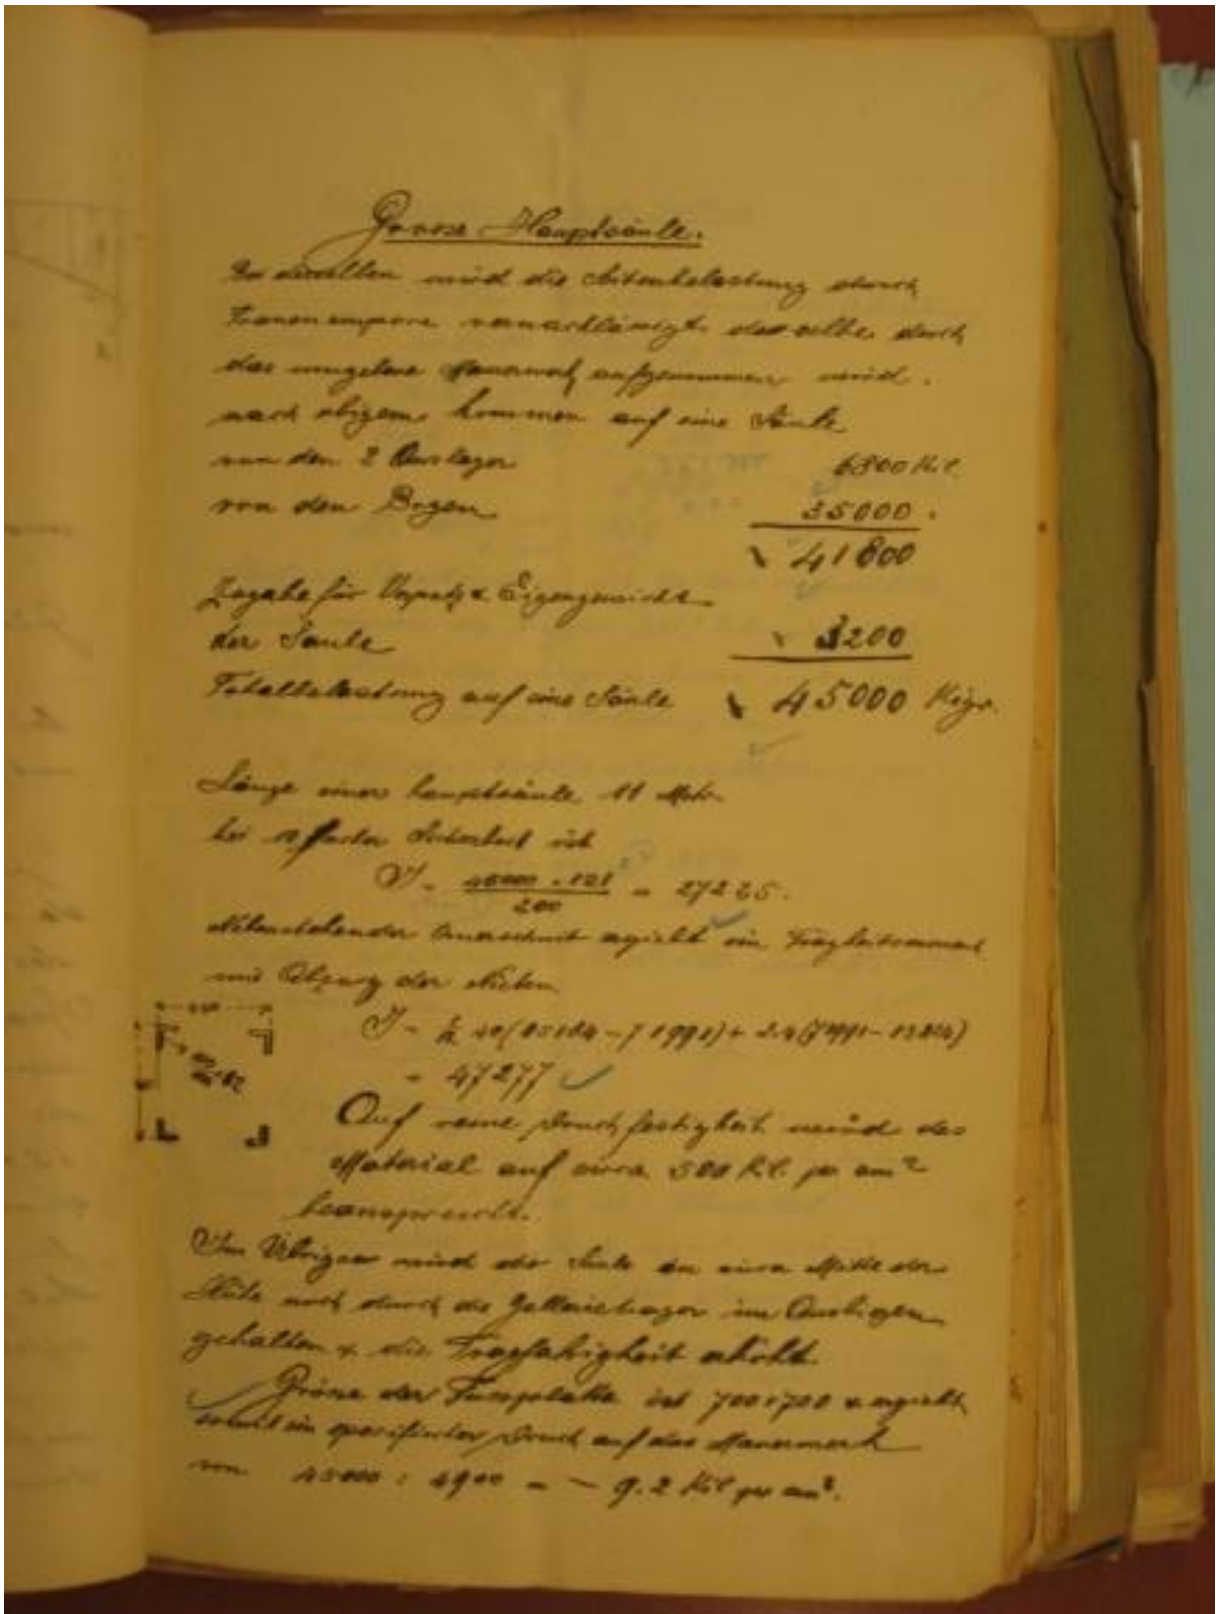 Grosse Hauptsäule.
Bei derselben wird die Seitenbelastung durch
Frauenempore vernachlässigt, da dieselbe durch
das umgebene Mauerwerk aufgenommen wird.
nach obigem kommen auf eine Säule
von den 2 Auslager 6800 Kil.
von den Bogen 35000.
41800
Zugabe für Verputz & Eigengewicht
der Säule 3200
Totalbelastung auf eine Säule 45000 Klgr.
Länge einer Hauptsäule 11 Metr.
bei facher Sicherheit ist
J = 45000 . 121 / 200 = 27225.
Nebenstehender Querschnitt ergiebt ein Trägheitsmoment
mit Abzug der Nieten
J = 40(85184 - 71991) + 2.4(71991 - 13824)
= 47277
Auf reine Druckfestigkeit wird das
Material auf circa 500 Kil. per cm²
beansprucht.
Im Übrigen wird die Säule in circa Mitte der
Höhe noch durch die Gallerieträger im
gehalten & die Tragfähigkeit erhöht.
Grösse der Fussplatte ist 700.700 & ergiebt
somit ein specifischer Druck auf das Mauerwerk
von 45000 : 4900 = ~ 9.2 Kil per cm².